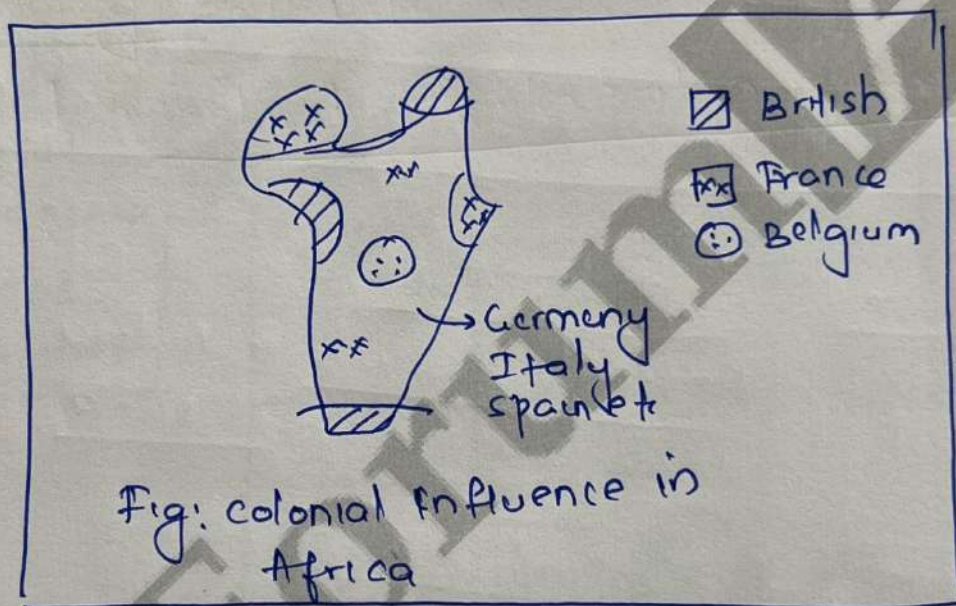 British
France
Belgium
Germeny
Italy
spain etc
Fig: colonial Influence in
Africa
Forum